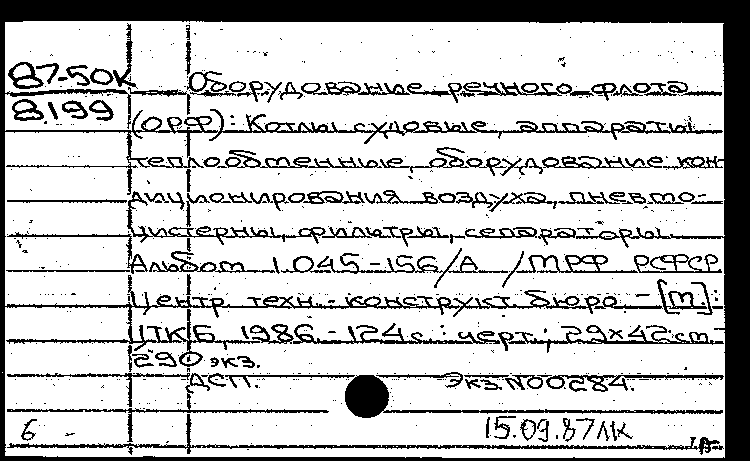 87-50К
8199
Оборудование речного флота
(ОРФ): Котлы судовые, аппараты
теплообменные, оборудование кон-
диционирования воздуха, пневмо-
цистерны, фильтры, сепараторы.
Альбом 1.045-156/А /МРФ РСФСР.
Центр. техн.-конструкт. бюро. - [М.]:
ЦТКБ, 1986. - 124 с.: черт.; 29×42 см. -
290 экз.
ДСП. Экз. N00284.
6 - 15.09.87 ЛК